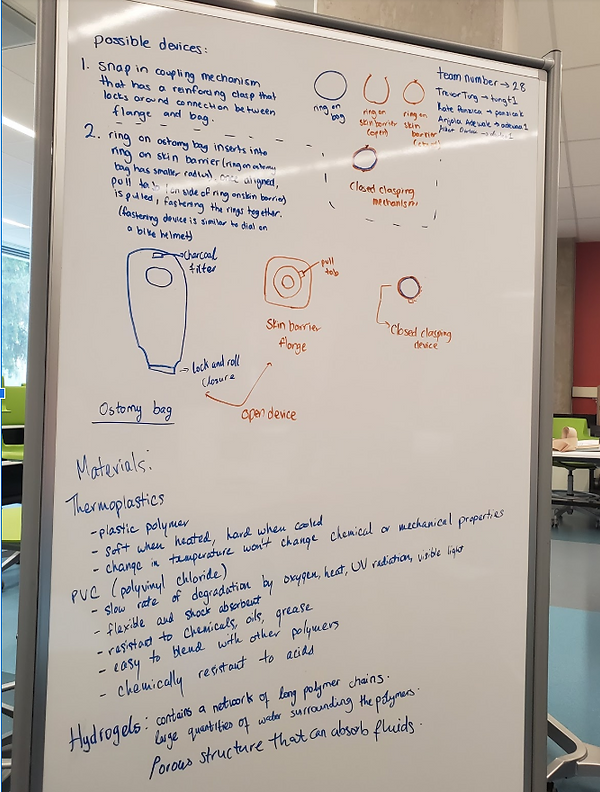 possible devices:
1. snap in coupling mechanism
that has a reinforcing clasp that
locks around connection between
flange and bag.
ring on
bag
ring on
skin barrier
(open)
ring on
skin
barrier
team number → 28
Trevor Tung → tungt1
Kate Panzica → panzicak
Anjola Adewale →
2. ring on ostomy bag inserts into
ring on skin barrier (ring on ostomy
bag has smaller radius). once aligned,
pull tab (on side of ring on skin barrier)
is pulled, fastening the rings together.
(fastening device is similar to dial on
a bike helmet)
Closed clasping
mechanism
charcoal
filter
lock and roll
closure
Ostomy bag
pull
tab
skin barrier
flange
open device
closed clasping
device
Materials:
Thermoplastics
- plastic polymer
- soft when heated, hard when cooled
- change in temperature won't change chemical or mechanical properties
PVC (polyvinyl chloride)
- slow rate of degradation by oxygen, heat, UV radiation, visible light
- flexible and shock absorbent
- resistant to chemicals, oils, grease
- easy to blend with other polymers
- chemically resistant to acids
Hydrogels: contains a network of long polymer chains.
large quantities of water surrounding the polymers.
Porous structure that can absorb fluids.